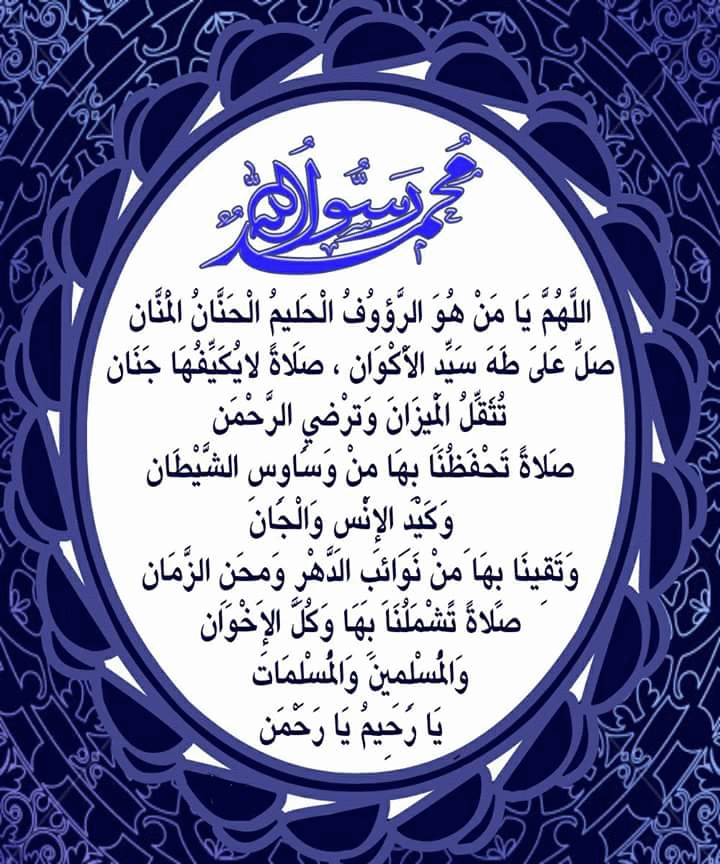 محمد رسول الله
اللَّهُمَّ يَا مَنْ هُوَ الرَّؤُوفُ الْحَليمُ الْحَنَّانُ الْمَنَّان
صَلِّ عَلَىَ طَهَ سَيِّد الأَكْوَان ، صَلَاةً لايُكَيِّفُهَا جَنَان
تُثَقِّلُ الْمِيزَانَ وَتَرْضي الرَّحْمَن
صَلاةً تَحْفَظُنَا بهَا منْ وَسَاوِس الشَّيْطَان
وَكَيْد الإنْس وَالْجَانَ
وَتَقِينَا بهَا مَنْ نَوَائبَ الدَّهْرِ وَمحَن الزَّمَان
صَلاةً تَشْمَلُنَا بهَا وَكُلَّ الإَخْوَان
وَالْمُسْلمينَ وَالْمُسْلمَات
يَا رَحِيمُ يَا رَحْمَن